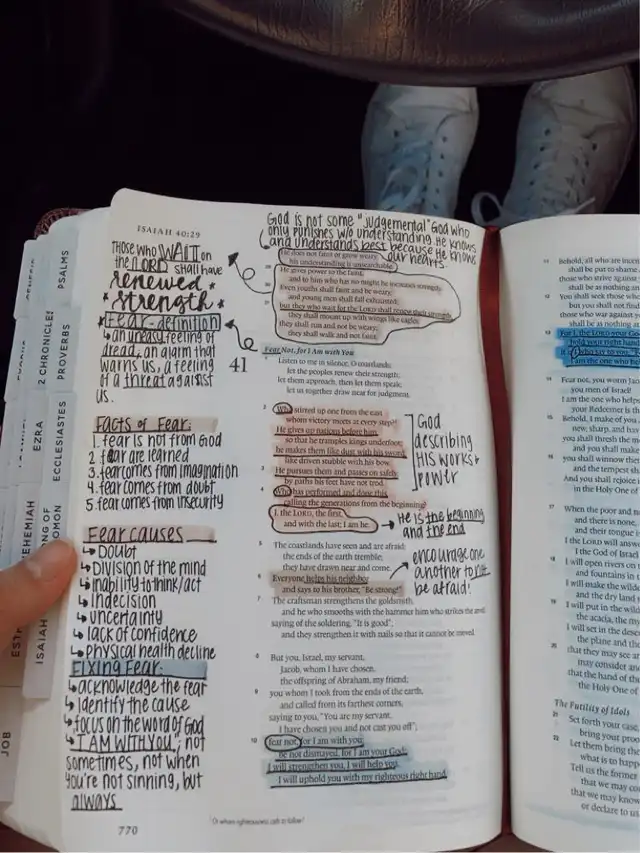 ISAIAH 40:29
God is not some "judgemental" God who
only punishes w/o understanding. He knows
and understands best because He knows
our hearts
THOSE who WAIT on
the LORD shall have
renewed
strength
Fear-definition
↳ an uneasy feeling of
dread, an alarm that
warns us, a feeling
of a threat against
us.
Facts of Fear:
1. fear is not from God
2. fear are learned
3. fear comes from imagination
4. fear comes from doubt
5. fear comes from insecurity
Fear causes
↳ Doubt
↳ Division of the mind
↳ inability to think/act
↳ indecision
↳ uncertainty
↳ lack of confidence
↳ physical health decline
FIXING Fear:
↳ acknowledge the fear
↳ identify the cause
↳ focus on the word of God
↳ "I AM WITH YOU", not
sometimes, not when
you're not sinning, but
always
770
He does not faint or grow weary;
his understanding is unsearchable.
He gives power to the faint,
and to him who has no might he increases strength.
Even youths shall faint and be weary,
and young men shall fall exhausted;
but they who wait for the LORD shall renew their strength;
they shall mount up with wings like eagles;
they shall run and not be weary;
they shall walk and not faint.
Fear Not, for I Am with You
41
Listen to me in silence, O coastlands;
let the peoples renew their strength;
let them approach, then let them speak;
let us together draw near for judgment.
2
Who stirred up one from the east
whom victory meets at every step?
He gives up nations before him,
so that he tramples kings underfoot;
he makes them like dust with his sword,
like driven stubble with his bow.
3
He pursues them and passes on safely,
by paths his feet have not trod.
4
Who has performed and done this,
calling the generations from the beginning?
I, the LORD, the first,
and with the last; I am he.
God
describing
HIS works &
power
He is the beginning
and the end
5
The coastlands have seen and are afraid;
the ends of the earth tremble;
they have drawn near and come.
6
Everyone helps his neighbor
and says to his brother, "Be strong!"
encourage one
another to
be afraid!
7
The craftsman strengthens the goldsmith,
and he who smooths with the hammer him who strikes the anvil,
saying of the soldering, "It is good";
and they strengthen it with nails so that it cannot be moved.
8
But you, Israel, my servant,
Jacob, whom I have chosen,
the offspring of Abraham, my friend;
9
you whom I took from the ends of the earth,
and called from its farthest corners,
saying to you, "You are my servant,
I have chosen you and not cast you off";
10
fear not, for I am with you;
be not dismayed, for I am your God;
I will strengthen you, I will help you,
I will uphold you with my righteous right hand.
PSALMS
2 CHRONICLES
PROVERBS
EZRA
ECCLESIASTES
NEHEMIAH
ISAIAH
JOB
Behold, all who are
shall be put to shame
those who strive against
shall be as nothing
You shall seek those
those who war against
shall be as nothing
For I, the LORD your God
hold your right hand
it is I who say to you,
I am the one who
Fear not, you worm Jacob
you men of Israel!
I am the one who helps
your Redeemer is the
Behold, I make of you
new, sharp, and
you shall thresh the
and you shall make
you shall winnow
and the tempest
And you shall rejoice
in the Holy One of
When the poor and
and there is none,
and their tongue
I the LORD will answer
I the God of Israel
I will open rivers on
and fountains in
I will make the wilderness
and the dry land
I will put in the wilderness
the acacia, the
I will set in the desert
the plane and the
that they may see
may consider
that the hand of the
the Holy One of
The Futility of Idols
21
Set forth your case,
bring your
Let them bring
what is to
Tell us the former
that we may
that we may know
or declare to us